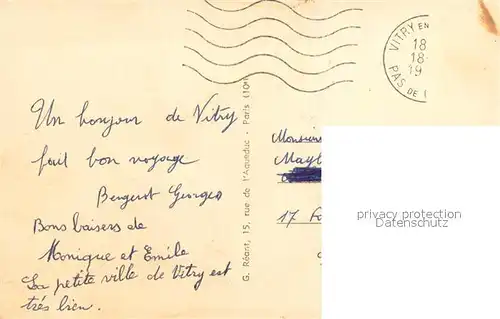 VITRY EN
18
18-
19
PAS DE
Un bonjour de Vitry
fait bon voyage
Bergerot Georges
Bons baisers de
Monique et Emile
La petite ville de Vitry est
très bien.
G. Réant, 15, rue de l'Aqueduc - Paris (10e)
Monsieur
17
privacy protection
Datenschutz